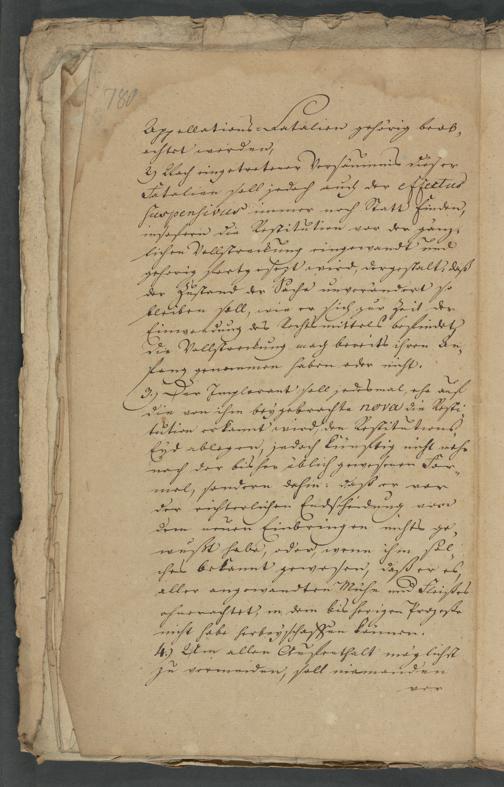 780
Appellations-Fatalien gehörig beob-
achtet werden,
2.) Nach eingetretener Versäumnis dieser
Fatalien soll jedoch auch der effectus
suspensivus immer noch Statt finden,
insofern die Restitution vor der gänz-
lichen Vollstreckung eingewandt und
gehörig fortgesetzt wird, dergestalt, daß
der Zustand der Sache unverändert so
bleiben soll, wie er sich zur Zeit der
Einwendung des Rechtsmittels befindet,
die Vollstreckung mag bereits ihren An-
fang genommen haben oder nicht.
3.) Der Implorant soll jedesmal, ehe auf
die von ihm beygebrachte nova die Resti-
tution erkannt wird, den Restitutions
Eyd ablegen, jedoch künftig nicht mehr
nach der bisher üblich gewesenen For-
mel, sondern dahin: daß er vor
der richterlichen Entscheidung von
dem neuen Einbringen nichts ge-
wußt habe, oder, wenn ihm sol-
ches bekannt gewesen, daß er es
aller angewandten Mühe und Fleißes
ohnerachtet, in dem bisherigen Prozesse
nicht habe herbeyschaffen können.
4.) Um allen Aufenthalt möglichst
zu vermeiden, soll niemanden
vor